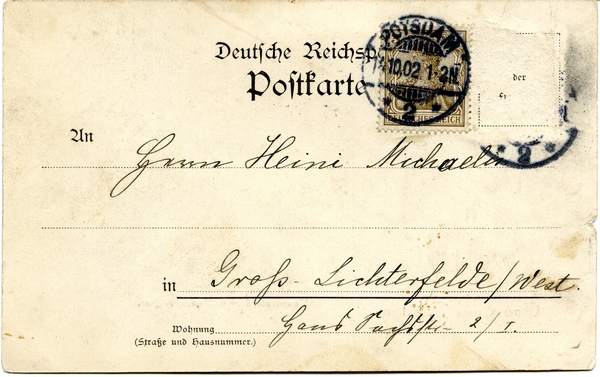 Deutsche Reichspo
Postkarte
POTSDAM
.10.02. 1-2N.
* 2 *
REICH
der
* 2 *
An
Herrn Heini Michaelis
in
Groß-Lichterfelde/West.
Wohnung
(Straße und Hausnummer.)
Hans Sachsstr 2/I.